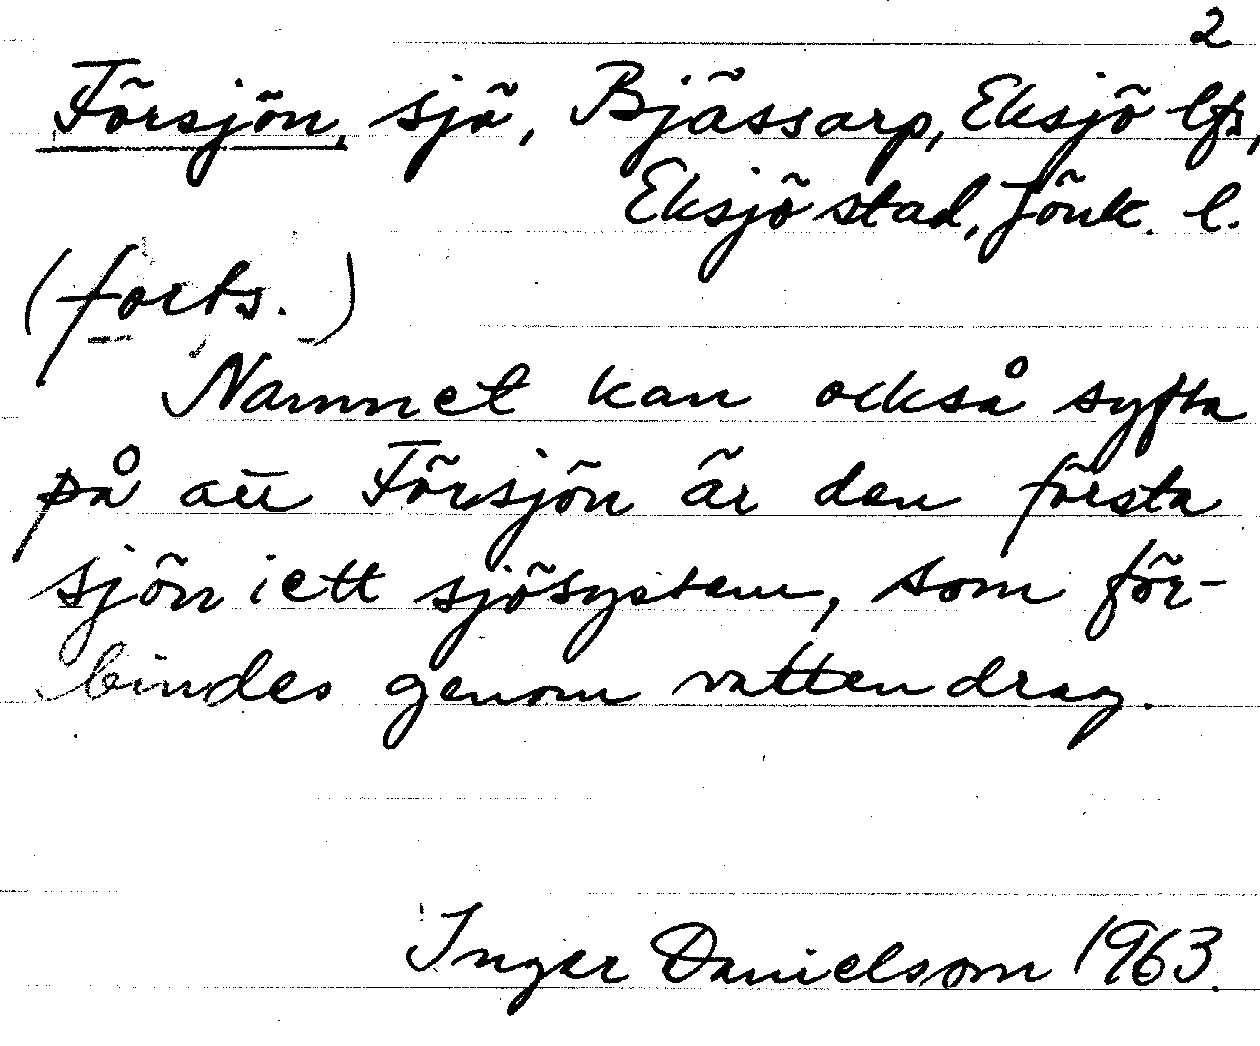 2
Försjön, sjö, Bjässarp, Eksjö lfs,
Eksjö stad, Jönk. l.
(forts.)
Namnet kan också syfta
på att Försjön är den första
sjön i ett sjösystem, som för-
bindes genom vattendrag.
Inger Danielsson 1963.